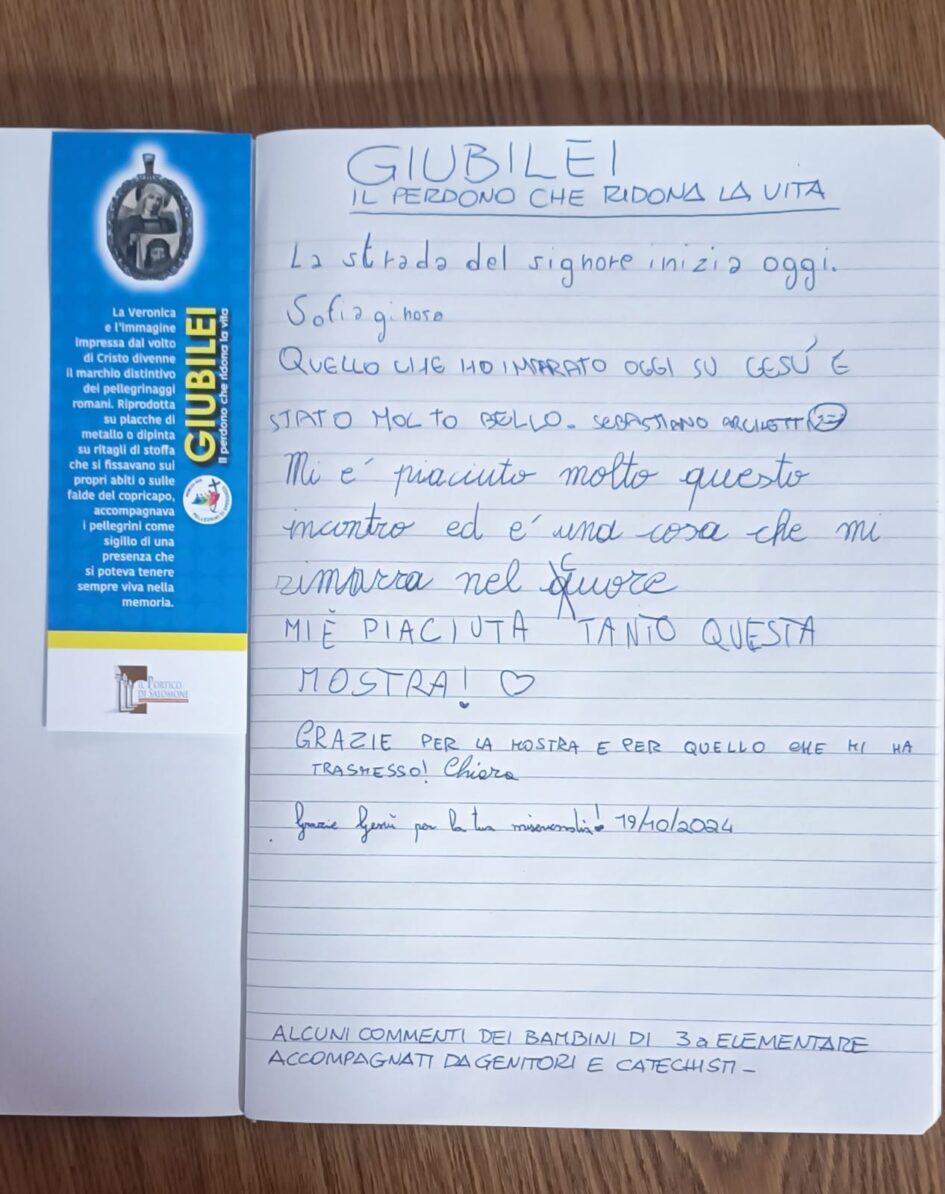 La Veronica
e l'immagine
impressa dal volto
di Cristo divenne
il marchio distintivo
dei pellegrinaggi
romani. Riprodotta
su placche di
metallo o dipinta
su ritagli di stoffa
che si fissavano sui
propri abiti o sulle
falde del copricapo,
accompagnava
i pellegrini come
sigillo di una
presenza che
si poteva tenere
sempre viva nella
memoria.
GIUBILEI
Il perdono che ridona la vita
IL PORTICO
DI SALOMONE
GIUBILEI
IL PERDONO CHE RIDONA LA VITA
La strada del signore inizia oggi.
Sofia
QUELLO CHE HO IMPARATO OGGI SU GESÚ E
STATO MOLTO BELLO. SEBASTIANO
Mi é piaciuto molto questo
incontro ed é una cosa che mi
rimarra nel cuore
MI È PIACIUTA TANTO QUESTA
MOSTRA! ♡
GRAZIE PER LA MOSTRA E PER QUELLO CHE MI HA
TRASMESSO! Chiara
Grazie Gesù per la tua misericordia! 19/10/2024
ALCUNI COMMENTI DEI BAMBINI DI 3a ELEMENTARE
ACCOMPAGNATI DA GENITORI E CATECHISTI -